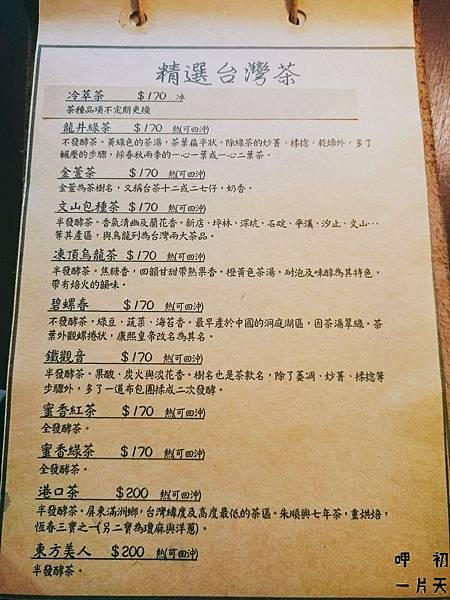 精選台灣茶
冷萃茶 $170 冰
茶種品項不定期更換
龍井綠茶 $170 熱(可回沖)
不發酵茶。黃綠色的茶湯，茶葉扁平狀。除綠茶的炒菁、揉捻、乾燥外，多了
輾壓的步驟，採春秋兩季的一心一葉或一心二葉茶。
金萱茶 $170 熱(可回沖)
金萱為茶樹名，又稱台茶十二或二七仔，奶香。
文山包種茶 $170 熱(可回沖)
半發酵茶。香氣清幽及蘭花香。新店、坪林、深坑、石碇、平溪、汐止、文山…
等其產區，與烏龍列為台灣兩大茶品。
凍頂烏龍茶 $170 熱(可回沖)
半發酵茶。焦糖香，回韻甘甜帶熟果香。橙黃色茶湯，耐泡及味醇為其特色，
帶有焙火的韻味。
碧螺春 $170 熱(可回沖)
不發酵茶。綠豆、蔬菜、海苔香。最早產於中國的洞庭湖區，因茶湯翠綠，茶
葉外觀螺捲狀，康熙皇帝改名為其名。
鐵觀音 $170 熱(可回沖)
半發酵茶。果酸、炭火與淡花香。樹名也是茶款名，除了萎凋、炒菁、揉捻等
步驟外，多了一道布包團揉成二次發酵。
蜜香紅茶 $170 熱(可回沖)
全發酵茶。
蜜香綠茶 $170 熱(可回沖)
全發酵茶。
港口茶 $200 熱(可回沖)
半發酵茶。屏東滿洲鄉，台灣緯度及高度最低的茶區。朱順興七年茶，重烘焙，
恆春三寶之一(另二寶為瓊麻與洋蔥)。
東方美人 $200 熱(可回沖)
半發酵茶。
呷 初
一片天